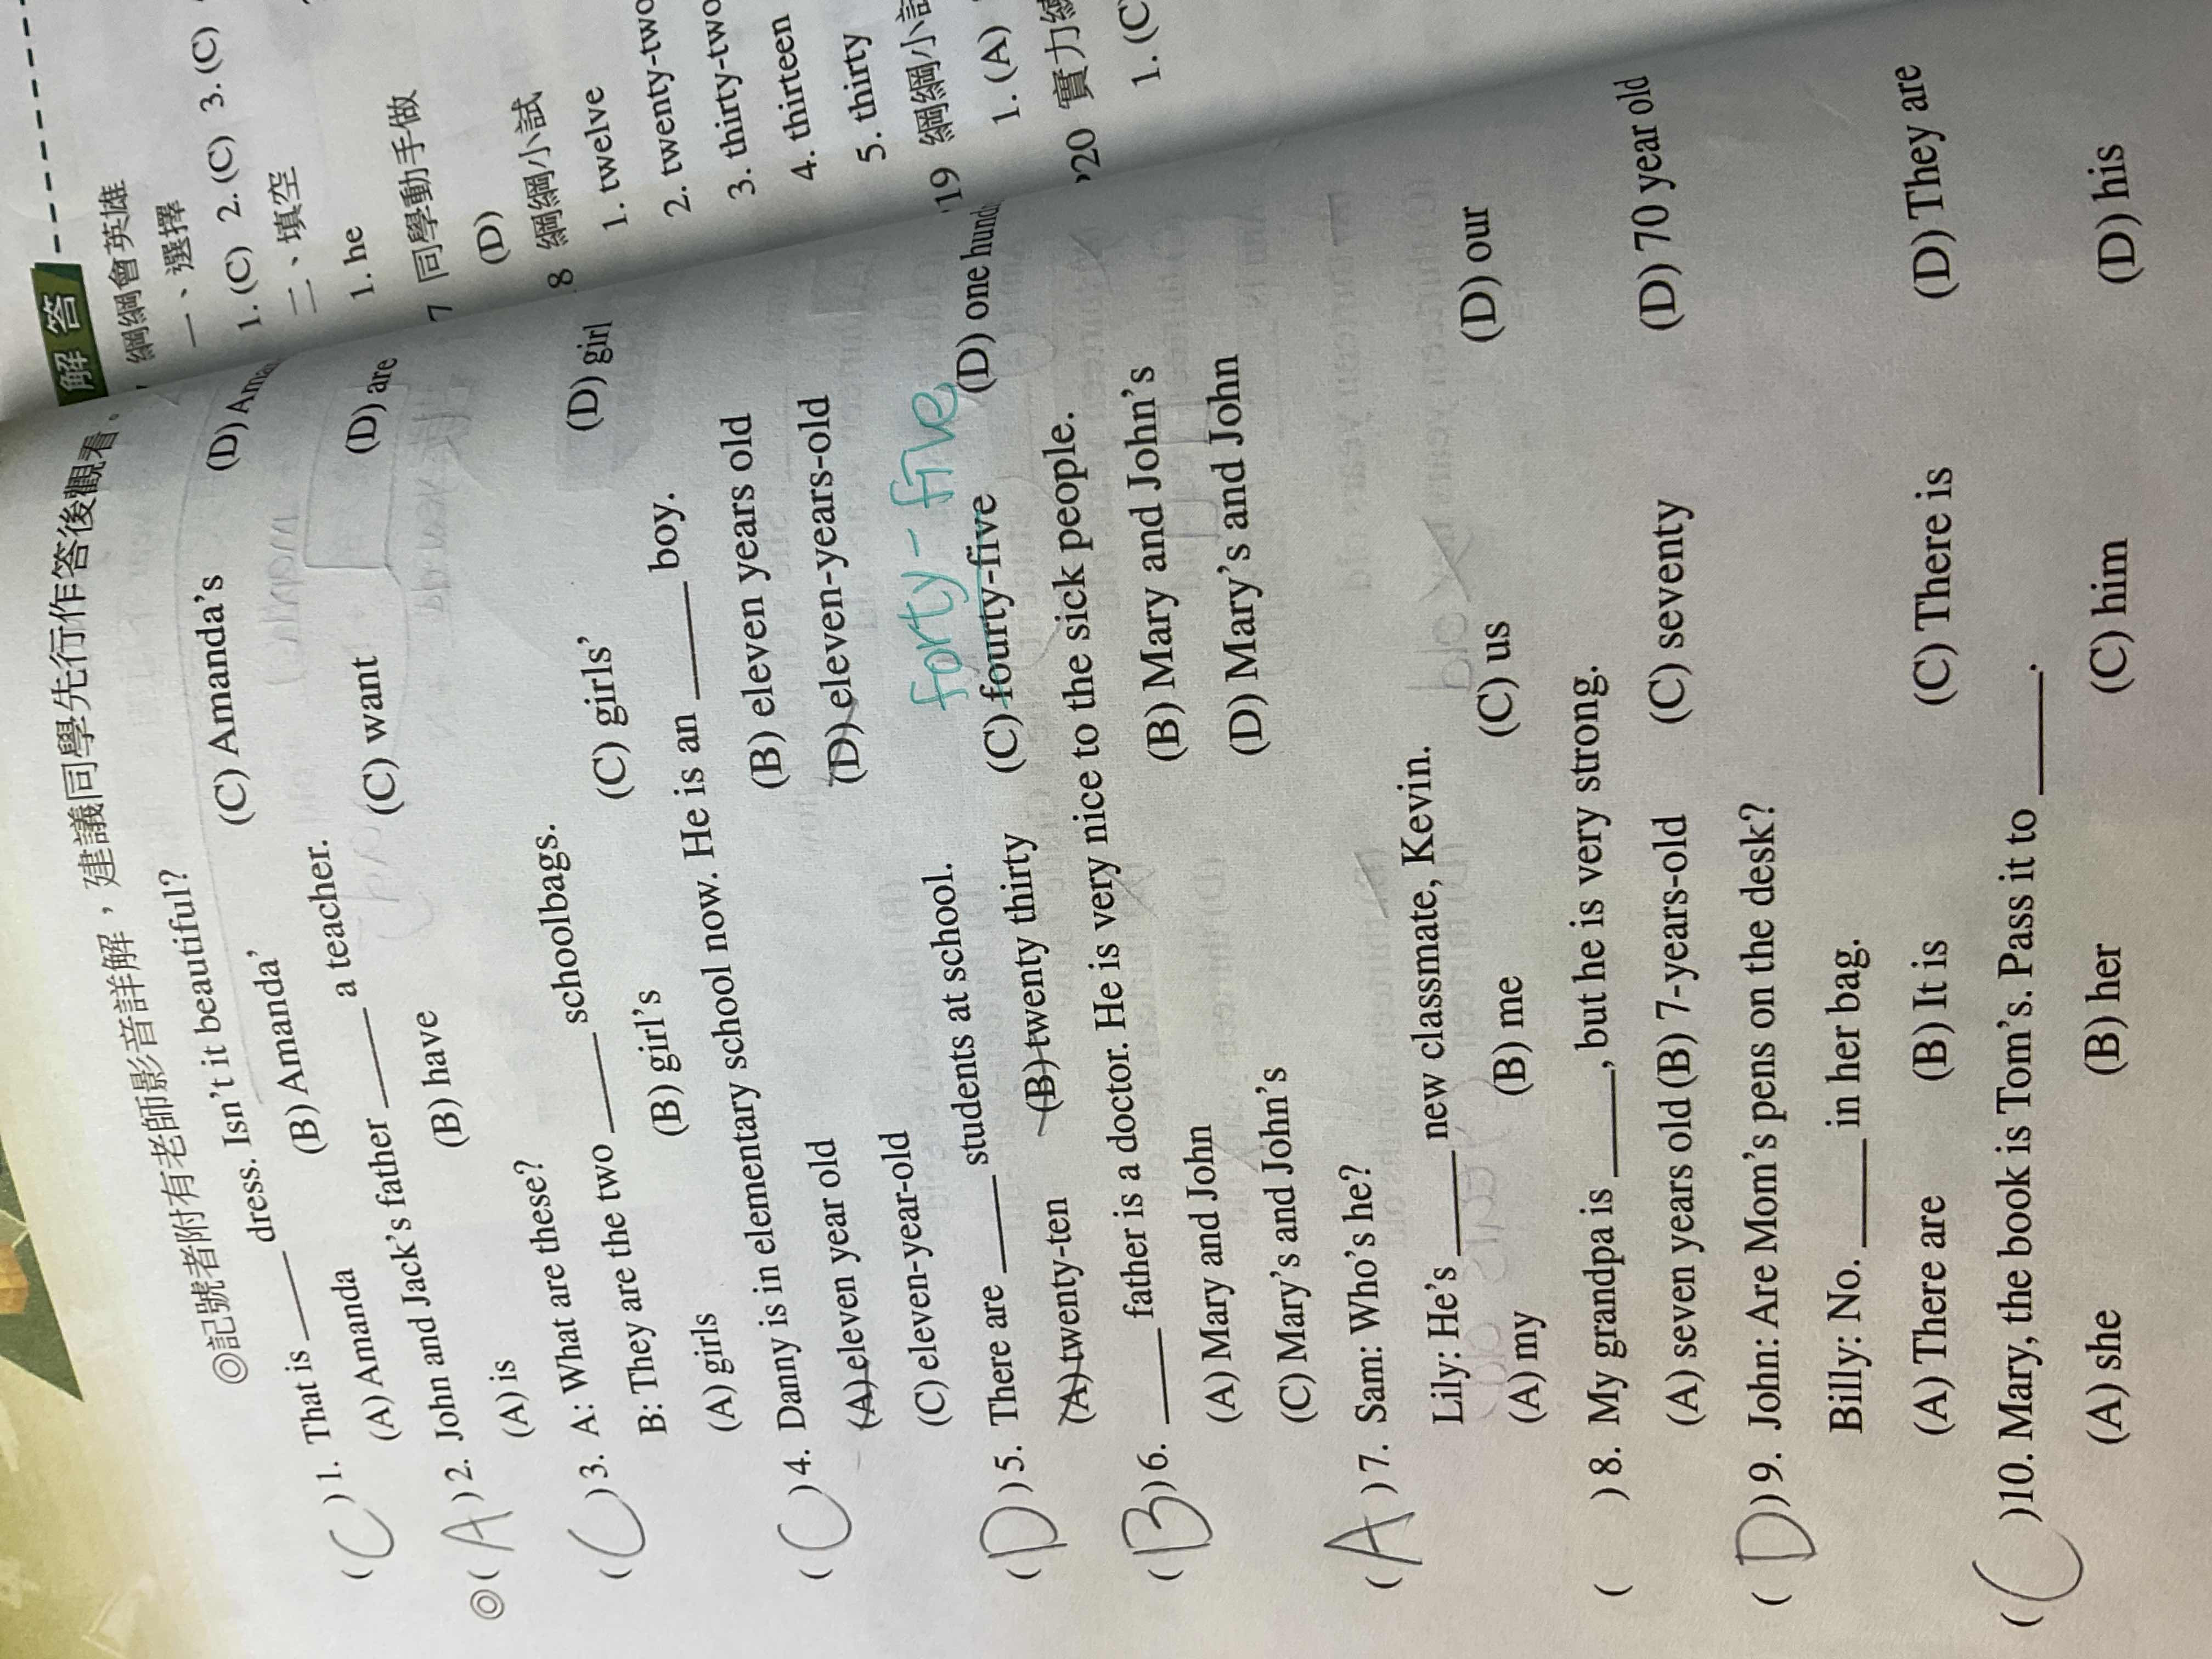 ◎記號者附有老師影音詳解，建議同學先行作答後觀看。
( C ) 1. That is ____ dress. Isn't it beautiful?
(A) Amanda (B) Amanda' (C) Amanda's (D)
◎( A ) 2. John and Jack's father ____ a teacher.
(A) is (B) have (C) want (D) are
( C ) 3. A: What are these?
B: They are the two ____ schoolbags.
(A) girls (B) girl's (C) girls' (D) girl
( C ) 4. Danny is in elementary school now. He is an ____ boy.
(A) eleven year old (B) eleven years old
(C) eleven-year-old (D) eleven-years-old
forty-five
( D ) 5. There are ____ students at school.
(A) twenty-ten (B) twenty thirty (C) fourty-five (D) one
( B ) 6. ____ father is a doctor. He is very nice to the sick people.
(A) Mary and John (B) Mary and John's
(C) Mary's and John's (D) Mary's and John
( A ) 7. Sam: Who's he?
Lily: He's ____ new classmate, Kevin.
(A) my (B) me (C) us (D) our
( ) 8. My grandpa is ____, but he is very strong.
(A) seven years old (B) 7-years-old (C) seventy (D) 70 year old
( D ) 9. John: Are Mom's pens on the desk?
Billy: No. ____ in her bag.
(A) There are (B) It is (C) There is (D) They are
( C )10. Mary, the book is Tom's. Pass it to ____.
(A) she (B) her (C) him (D) his
解答
綱綱會英雄
一、選擇
1. (C) 2. (C) 3. (C)
二、填空
1. he
7 同學動手做
(D)
8 綱綱小試
1. twelve
2. twenty-two
3. thirty-two
4. thirteen
5. thirty
19 綱綱小試
1. (A)
20 實力
1. (C)